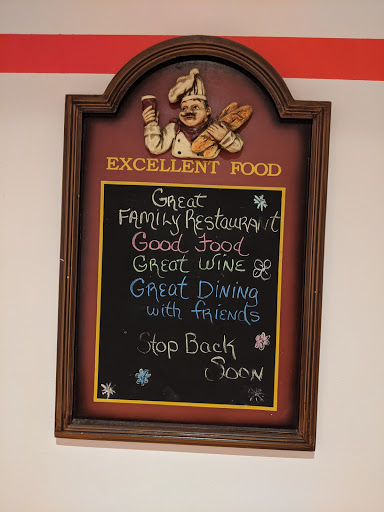 EXCELLENT FOOD
Great
FAMILY RESTAURANT
Good Food
GREAT WINE
GREAT DINING
with friends
Stop Back
Soon